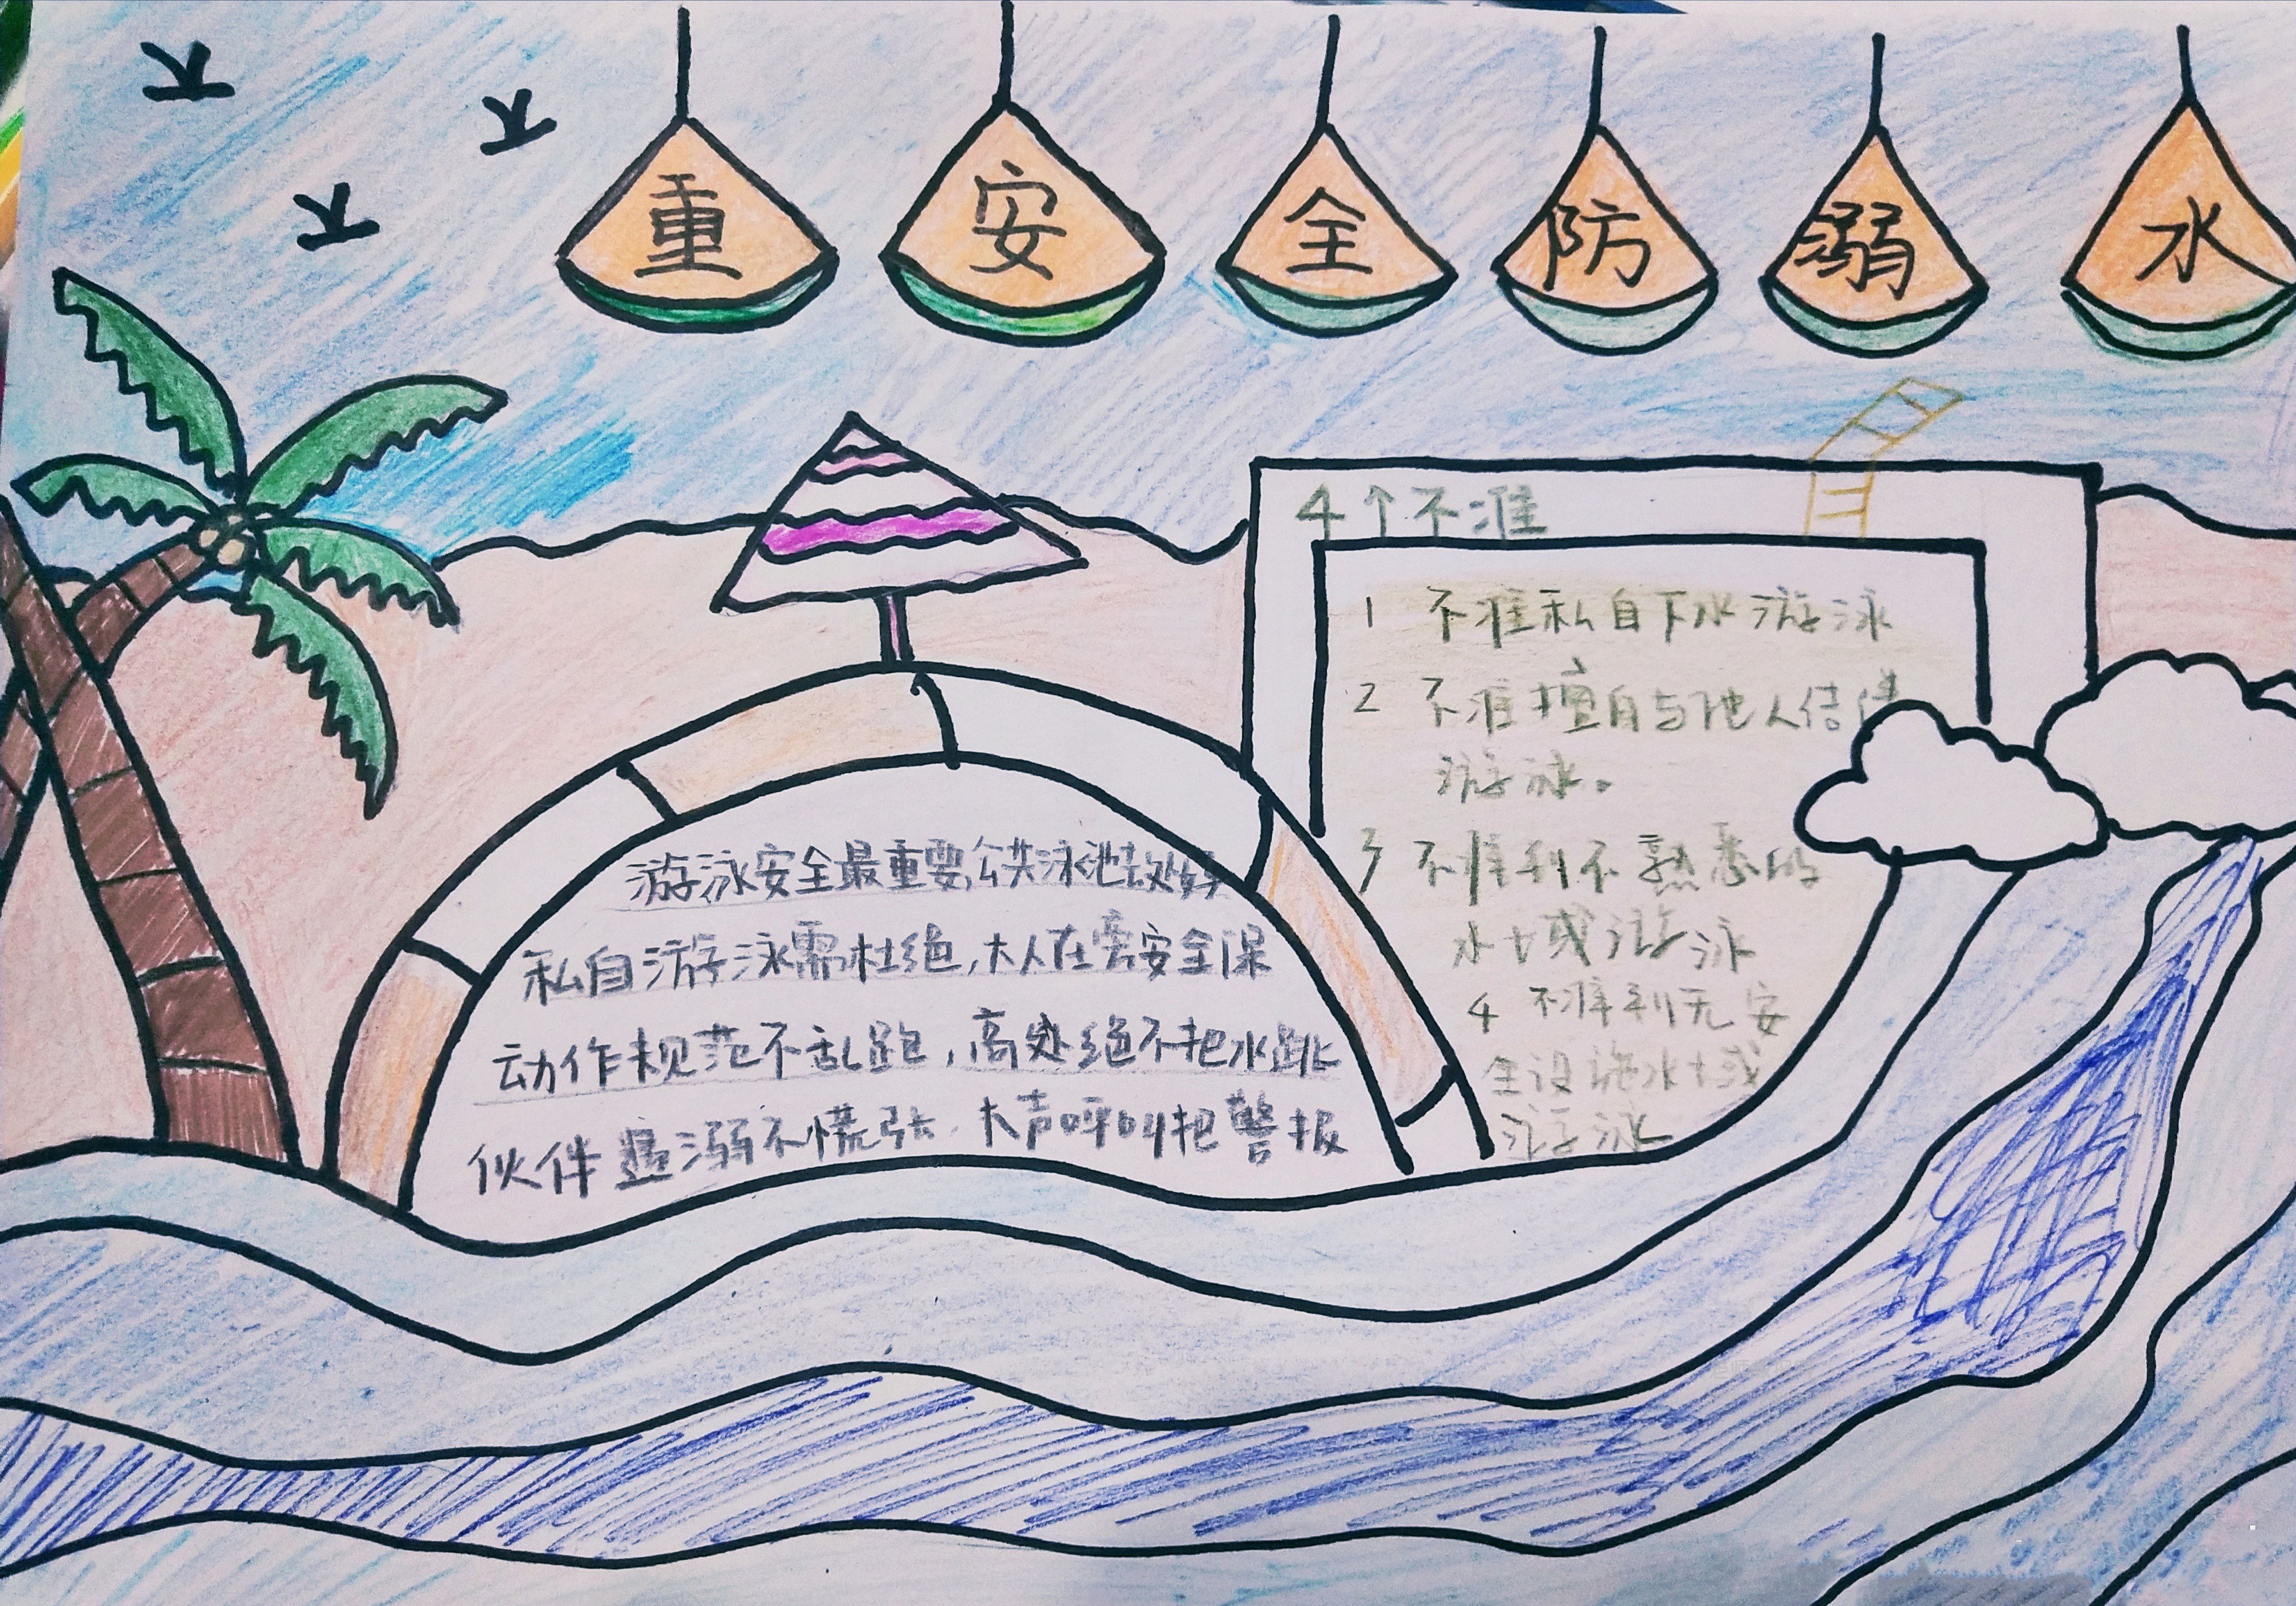 重安全防溺水
4个不准
1 不准私自下水游泳
2 不准擅自与他人结伴
游泳。
3 不准到不熟悉的
水域游泳
4 不准到无安
全设施水域
游泳
游泳安全最重要,公共泳池去处好
私自游泳需杜绝,大人在旁安全保
动作规范不乱跑,高处绝不把水跳
伙伴遇溺不慌张,大声呼叫把警报